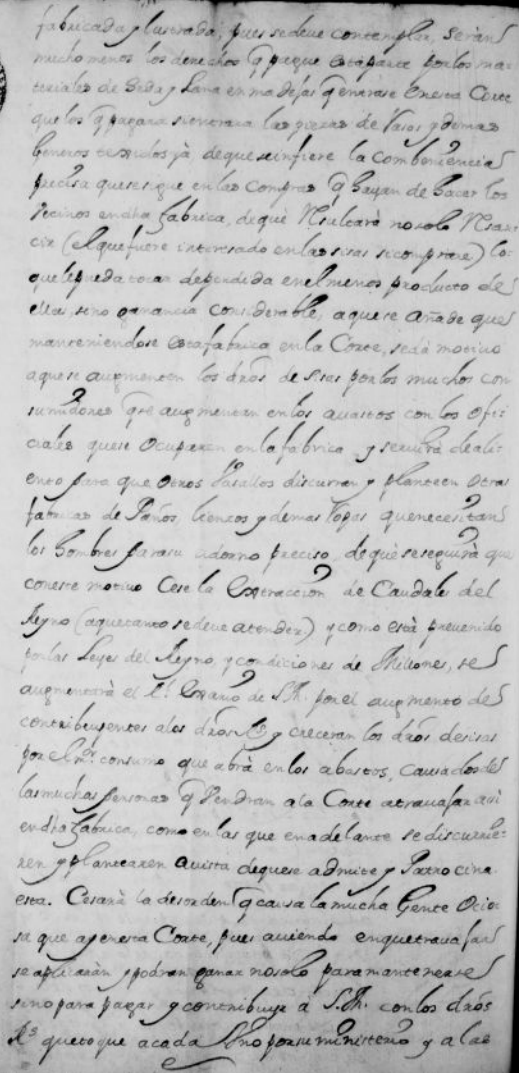 fabricada y lustrada, pues se deve contemplar, seràn
mucho menos los derechos q̃ pague esta parte por los ma-
teriales de Seda y Lana en madejas q̃ entrase en esta Corte
que los q̃ pagara si entrara las piezas de Rasos y demas
Generos texidos yà de que se infiere la combeniencia
precisa que se sigue en las compras q̃ hayan de hacer los
vecinos en dha fabrica, de què resultarà no solo resar
cir (el que fuere interesado en las sisas si comprare) lo
que le pueda tocar de perdida en el menos producto de
ellas, sino ganancia considerable, a que se añade que
manteniendose esta fabrica en la Corte, serà motivo
a que se augmenten los dr̃os de sisas por los muchos con
sumidores q̃ se augmentan en los avastos con los ofi
ciales que se ocuparen en la fabrica y servirà de ali-
ento para que otros Vasallos discurran y planteen otras
fabricas de Paños, lienzos y demas ropas que necesitan
los hombres para su adorno preciso, de què se seguirà que
con este motivo Cese la Extraccion de Caudales del
Reyno (a que tanto se deve atender) y como està prevenido
por las Leyes del Reyno, y condiciones de Millones, se
augmentarà el Rl. Erario de S.M. por el augmento de
contribuyentes a los dr̃os Rs y creceran los dr̃os de sisas
por el mr. consumo que abrà en los abastos, causado de
las muchas personas q̃ vendran a la Corte a travajar asi
en dha fabrica, como en las que en adelante se discurrie-
ren y plantearen a vista de que se admite y Patrocina
esta. Cesarà la desorden q̃ causa la mucha Gente Ocio
sa que ay en esta Corte, pues aviendo en que travajar
se aplicaràn y podran ganar no solo para mantenerse
sino para pagar y contribuyr à S.M. con los dr̃os
Rs que toque a cada Uno por su ministerio y a las